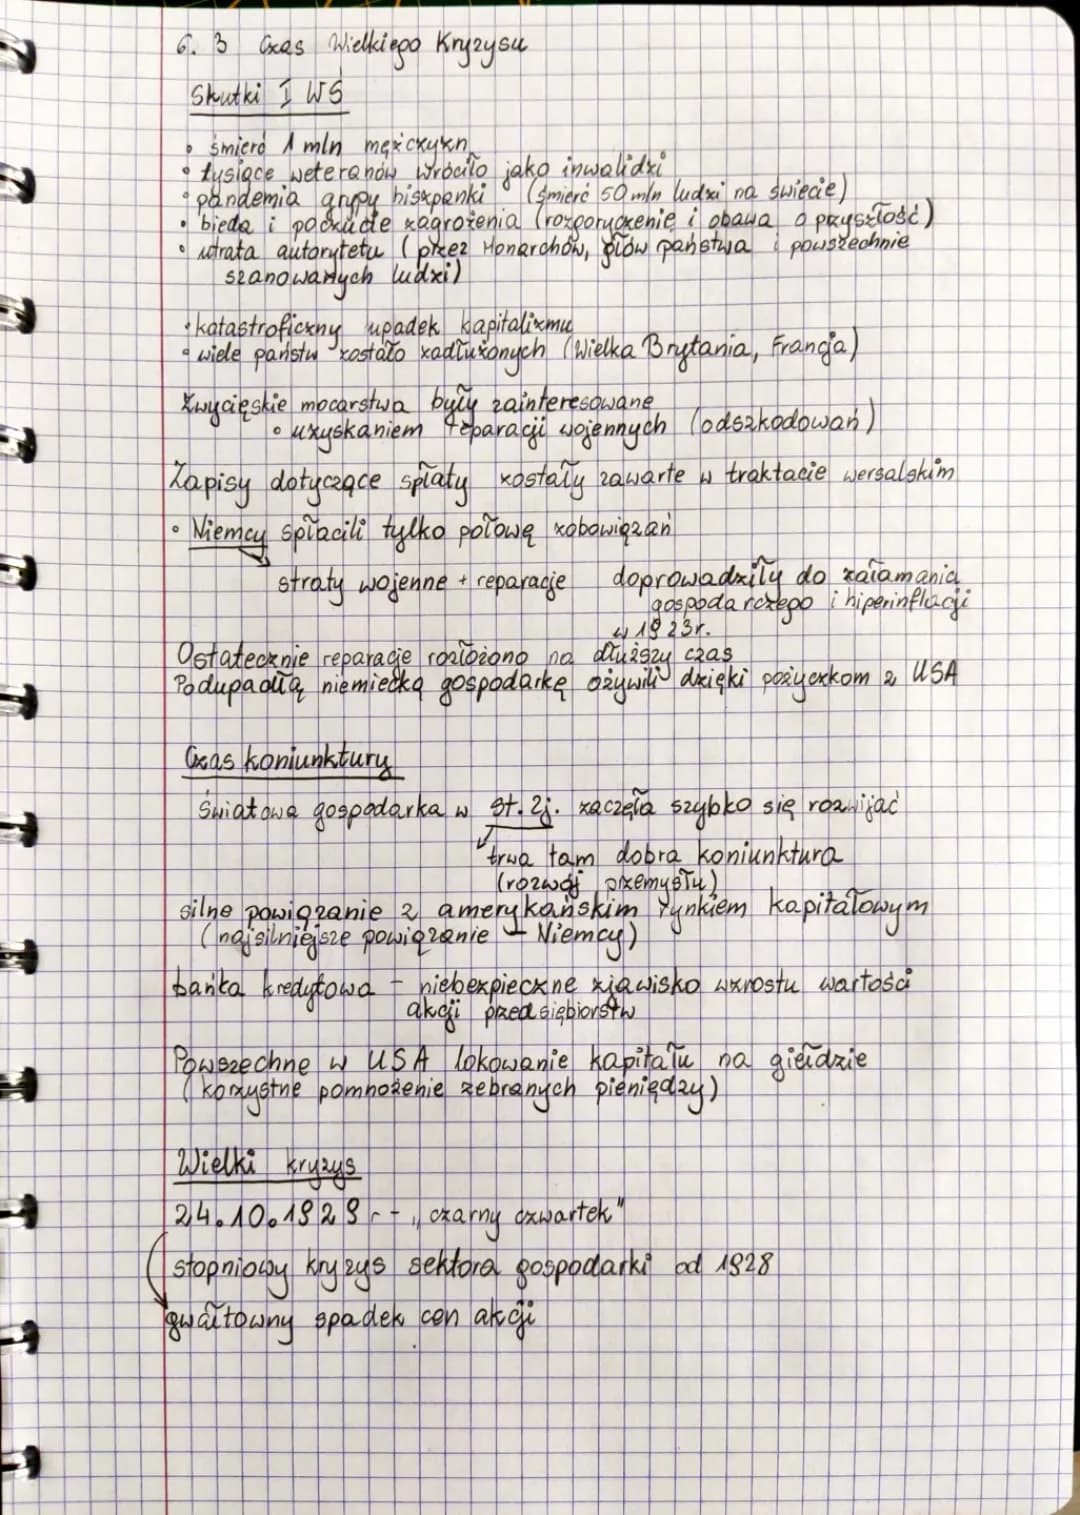 6. 3 Czas Wielkiego Kryzysu
Skutki I WŚ
• śmierć 1 mln mężczyzn
• tysiące weteranów wróciło jako inwalidzi
• pandemia grypy hiszpanki (śmierć 50 mln ludzi na świecie)
• bieda i poczucie zagrożenia (rozgoryczenie i obawa o przyszłość)
• utrata autorytetu (przez Monarchów, głów państwa i powszechnie
szanowanych ludzi)
• katastroficzny upadek kapitalizmu
• wiele państw zostało zadłużonych (Wielka Brytania, Francja)
Zwycięskie mocarstwa były zainteresowane
• uzyskaniem reparacji wojennych (odszkodowań)
Zapisy dotyczące spłaty zostały zawarte w traktacie wersalskim
• Niemcy spłacili tylko połowę zobowiązań
straty wojenne + reparacje doprowadziły do załamania
gospodarczego i hiperinflacji
w 1923r.
Ostatecznie reparacje rozłożono na dłuższy czas
Podupadłą niemiecką gospodarkę ożywili dzięki pożyczkom z USA
Czas koniunktury
Światowa gospodarka w St. Zj. zaczęła szybko się rozwijać
trwa tam dobra koniunktura
(rozwój przemysłu)
silne powiązanie z amerykańskim rynkiem kapitałowym
(najsilniejsze powiązanie - Niemcy)
bańka kredytowa - niebezpieczne zjawisko wzrostu wartości
akcji przedsiębiorstw
Powszechne w USA lokowanie kapitału na giełdzie
(korzystne pomnożenie zebranych pieniędzy)
Wielki kryzys
24.10.1929 r - „czarny czwartek"
stopniowy kryzys sektora gospodarki od 1928
gwałtowny spadek cen akcji